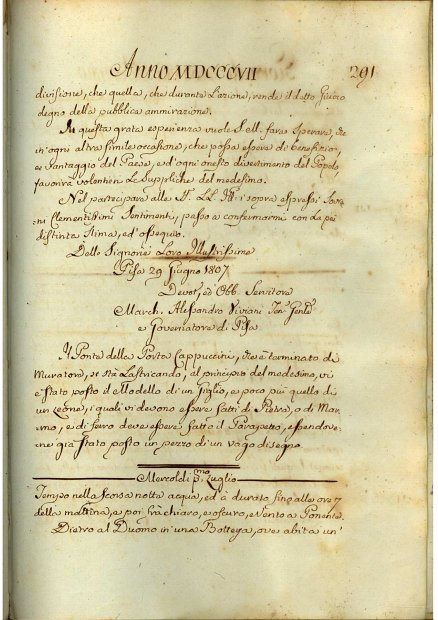 Anno MDCCCVII 291
divisione, che quella, che durante l'azione, rende il detto Giuoco
degno della pubblica ammirazione.
Questa grata esperienza vuole S. M. fara sperare, che
in ogni altra simile occasione, che possa essere di beneficio,
e vantaggio del Paese, e d'ogni onesto divertimento del Popolo,
favorirà volentieri le suppliche del medesimo.
Nel partecipare alle LL. Ill.ri sopra espressi Sovra
ni Clementissimi Sentimenti, passo a confermarmi con la più
distinta stima, ed ossequio.
Delle Signorie Loro Illustrissime
Pisa 29 Giugno 1807
Devot. ed Obb. Servitore
March. Alessandro Viviani Ten.e Gen.le
e Governatore di Pisa
Il Ponte della Porta Cappuccini, che è terminato di
Muratore, si stà Lastricando, al principio del medesimo, vi
è stato posto il Modello di un Giglio, e poco più quello di
un Leone, i quali vi devono essere fatti di Pietra, o di Mar
mo, e di ferro deve essere fatto il Parapetto, essendove
ne già stato posto un pezzo di un vago disegno.
Mercoldì p.mo Luglio
Tempo nella scorsa notte acqua, ed è durato fino alle ore 7
della mattina, e poi frà chiaro, e oscuro, e Vento a Ponente.
Dietro al Duomo in una Bottega, ove abita un'